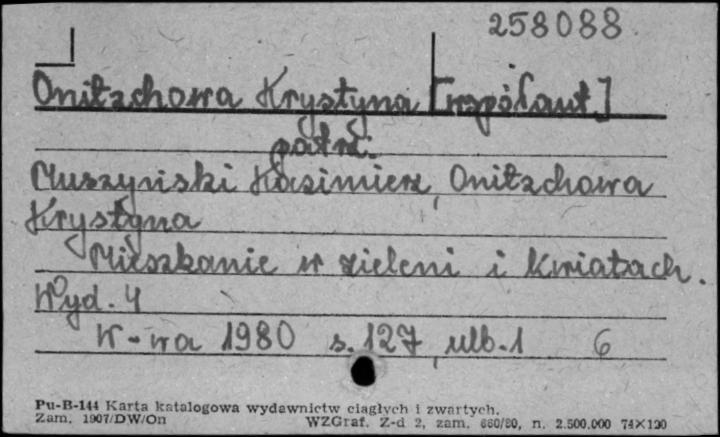 258088
Onitzchowa Krystyna [współaut]
patrz.
Muszyński Kazimierz, Onitzchowa
Krystyna
Mieszkanie w zieleni i kwiatach.
Wyd. 4
W-wa 1980 s. 127, ulb. 1 6
Pu-B-144 Karta katalogowa wydawnictw ciągłych i zwartych.
Zam. 1907/DW/On WZGraf. Z-d 2, zam. 660/80, n. 2.500.000 74×120